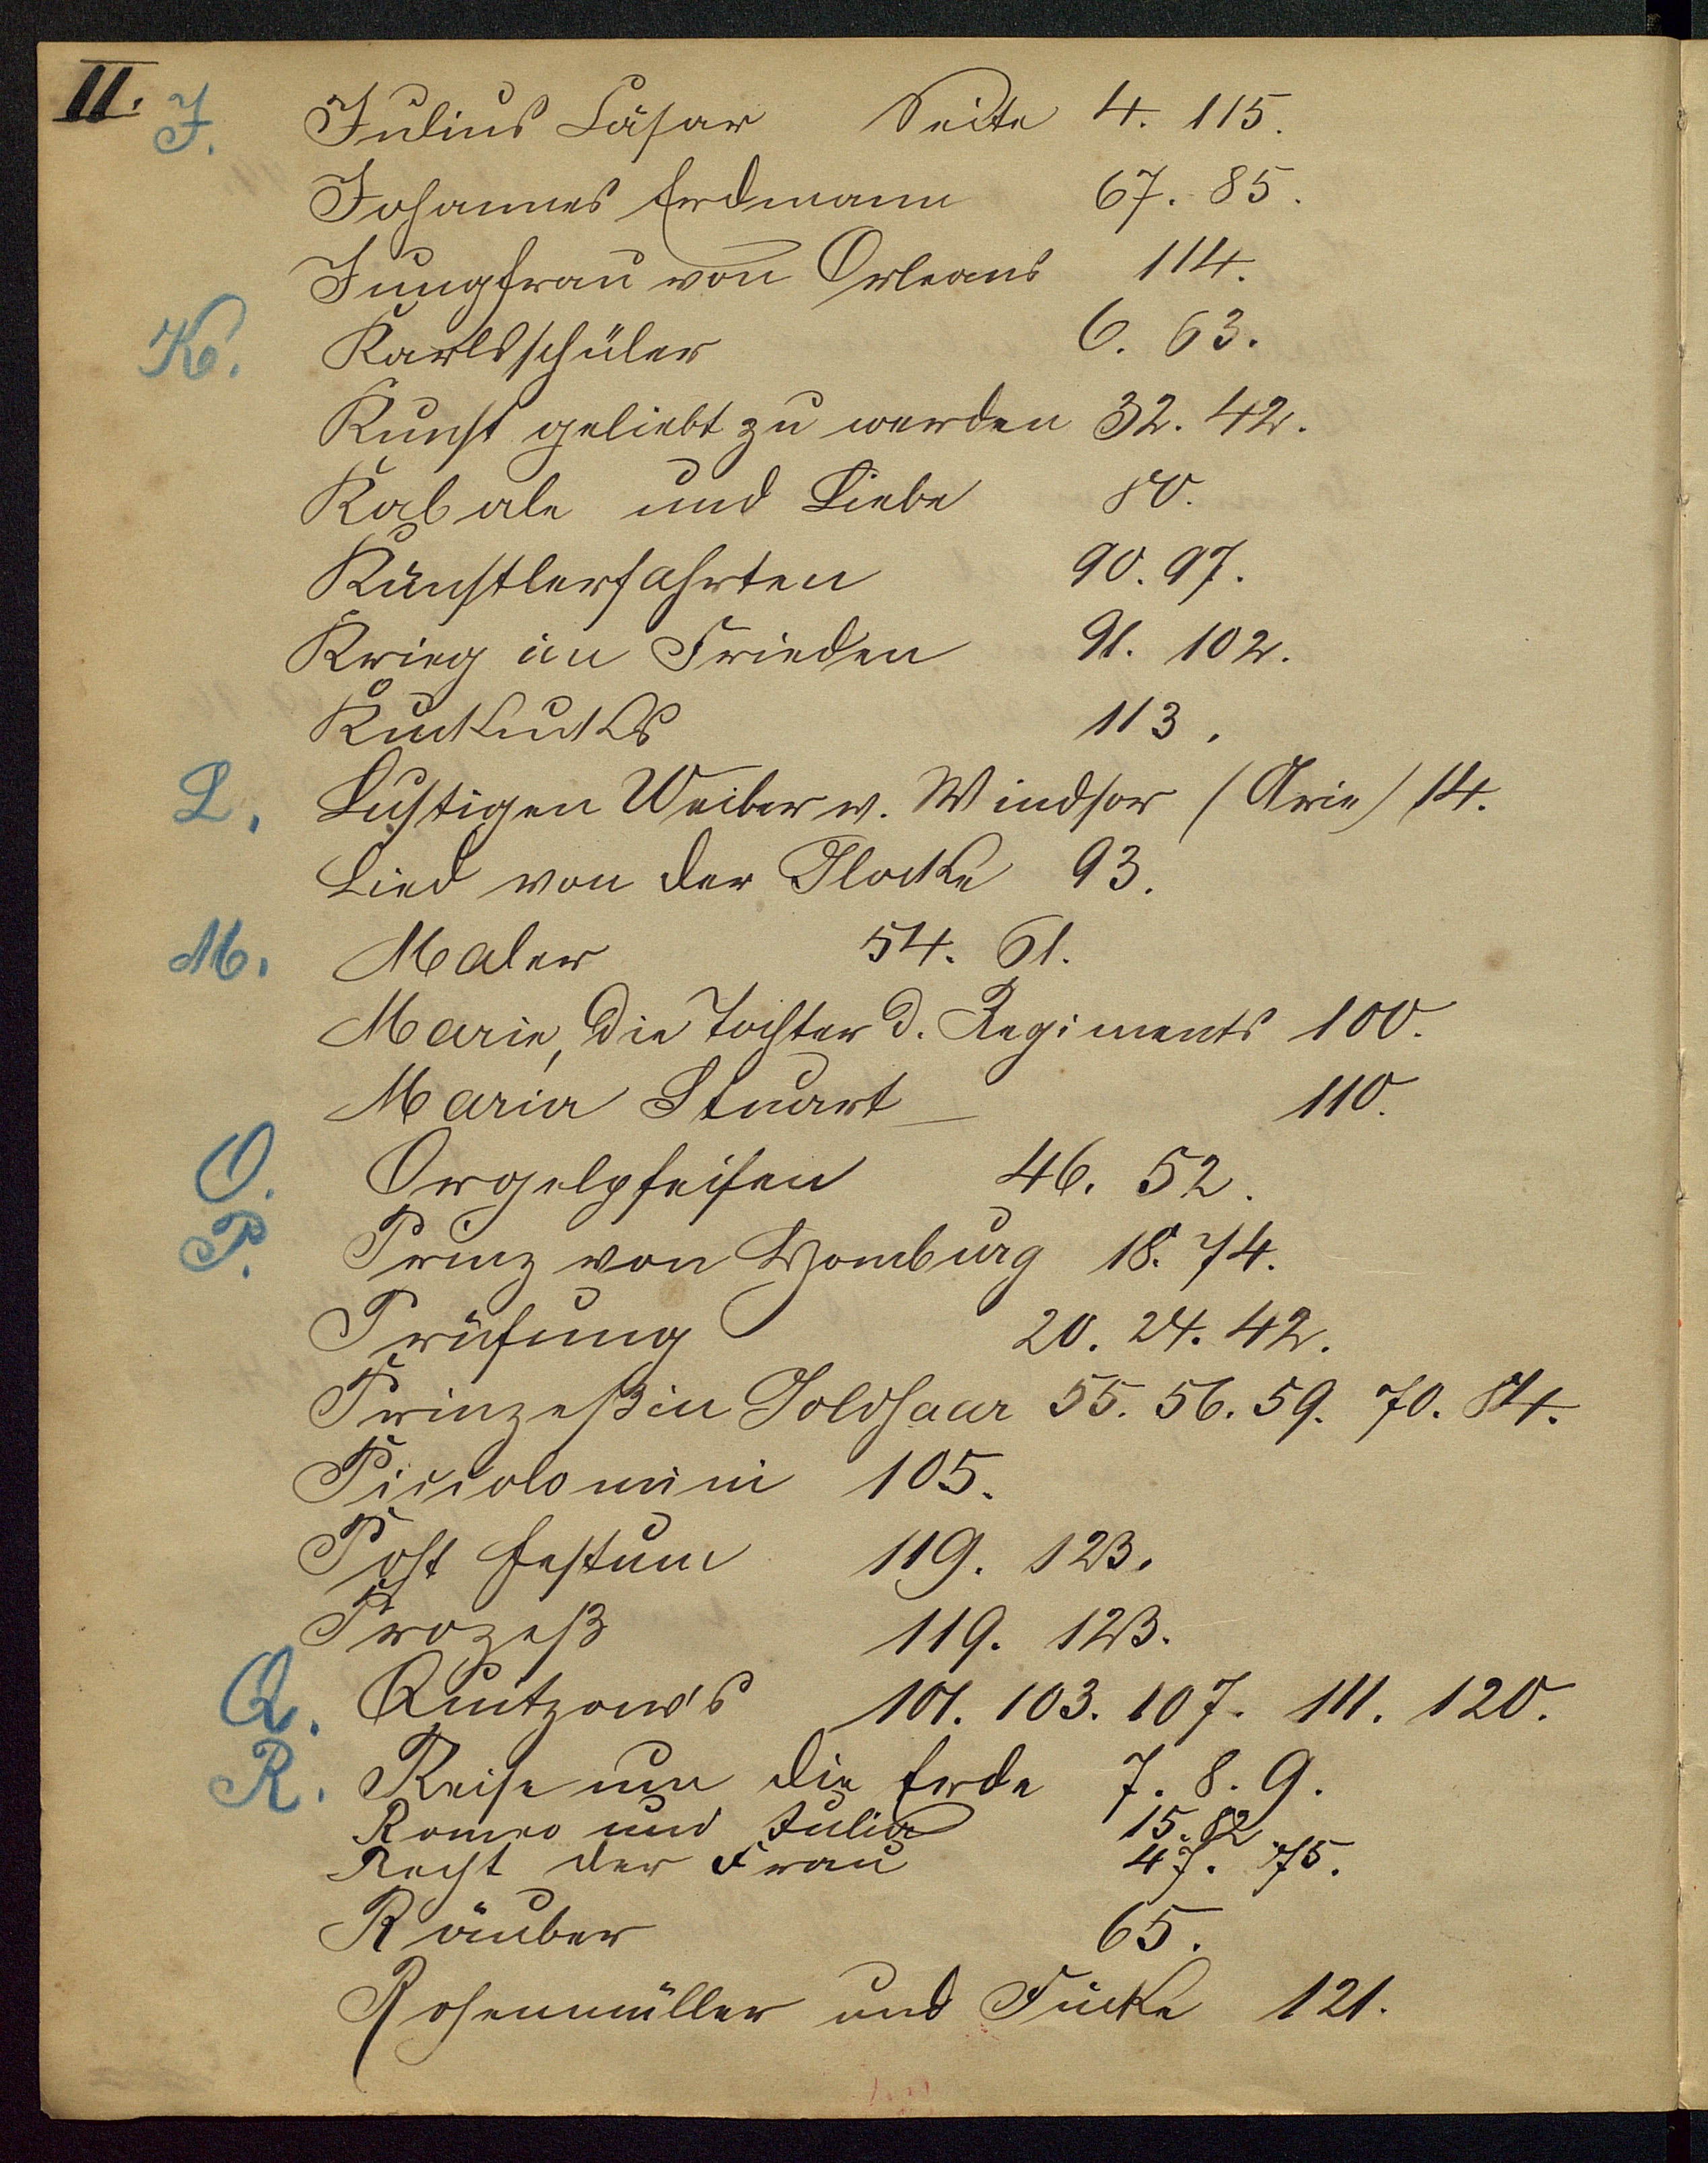 II.
J. Julius Cäsar Seite 4. 115.
Johannes Erdmann 67. 85.
Jungfrau von Orleans 114.
K. Karlsschüler 6. 63.
Kunst geliebt zu werden 32. 42.
Kabale und Liebe 80.
Künstlerfahrten 90. 97.
Krieg im Frieden 91. 102.
Kuckucks 113.
L. Lustigen Weiber v. Windsor (Arie) 14.
Lied von der Glocke 93.
M. Maler 54. 61.
Marie, die Tochter d. Regiments 100.
Maria Stuart 110.
O. Orgelpfeifen 46. 52.
P. Prinz von Homburg 18. 74.
Prüfung 20. 24. 42.
Prinzeßin Goldhaar 55. 56. 59. 70. 84.
Piccolomini 105.
Post festum 119. 123.
Prozeß 119. 123.
Q. Quitzow's 101. 103. 107. 111. 120.
R. Reise um die Erde 7. 8. 9.
Romeo und Julia 15. 82
Recht der Frau 47. 75.
Räuber 65.
Rosenmüller und Finke 121.